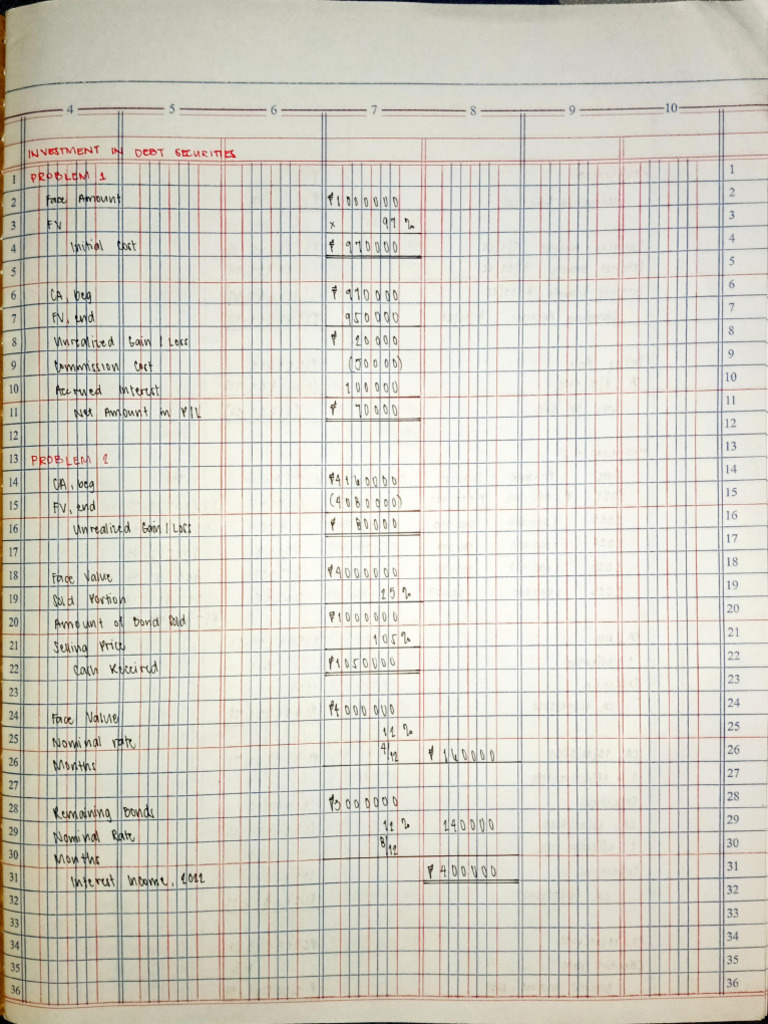 4 5 6 7 8 9 10
INVESTMENT IN DEBT SECURITIES
1 PROBLEM 1 1
2 Face Amount ₱1000000 2
3 FV x 97% 3
4 Initial Cost ₱ 970000 4
5 5
6 CA, beg ₱ 970000 6
7 FV, end 950000 7
8 Unrealized Gain / Loss ₱ 20000 8
9 Commission Cost (50000) 9
10 Accrued Interest 100000 10
11 Net Amount in P/L ₱ 70000 11
12 12
13 PROBLEM 2 13
14 CA, beg ₱4160000 14
15 FV, end (4080000) 15
16 Unrealized Gain / Loss ₱ 80000 16
17 17
18 Face Value ₱4000000 18
19 Sold Portion 25% 19
20 Amount of Bond Sold ₱1000000 20
21 Selling Price 105% 21
22 Cash Received ₱1050000 22
23 23
24 Face Value ₱4000000 24
25 Nominal rate 12% 25
26 Months 4/12 ₱ 160000 26
27 27
28 Remaining Bonds ₱3000000 28
29 Nominal Rate 12% 240000 29
30 Months 8/12 30
31 Interest Income, 2022 ₱ 400000 31
32 32
33 33
34 34
35 35
36 36